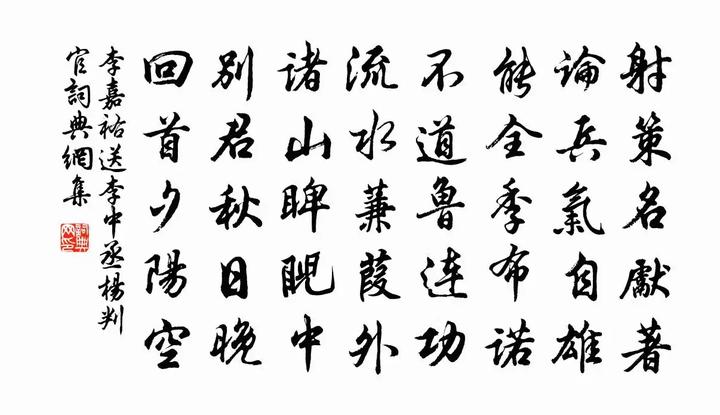 射策名獻著
論兵氣自雄
能全季布諾
不道魯連功
流水蒹葭外
諸山睥睨中
別君秋日晚
回首夕陽空
李嘉裕送李中丞楊判
官詞典網集